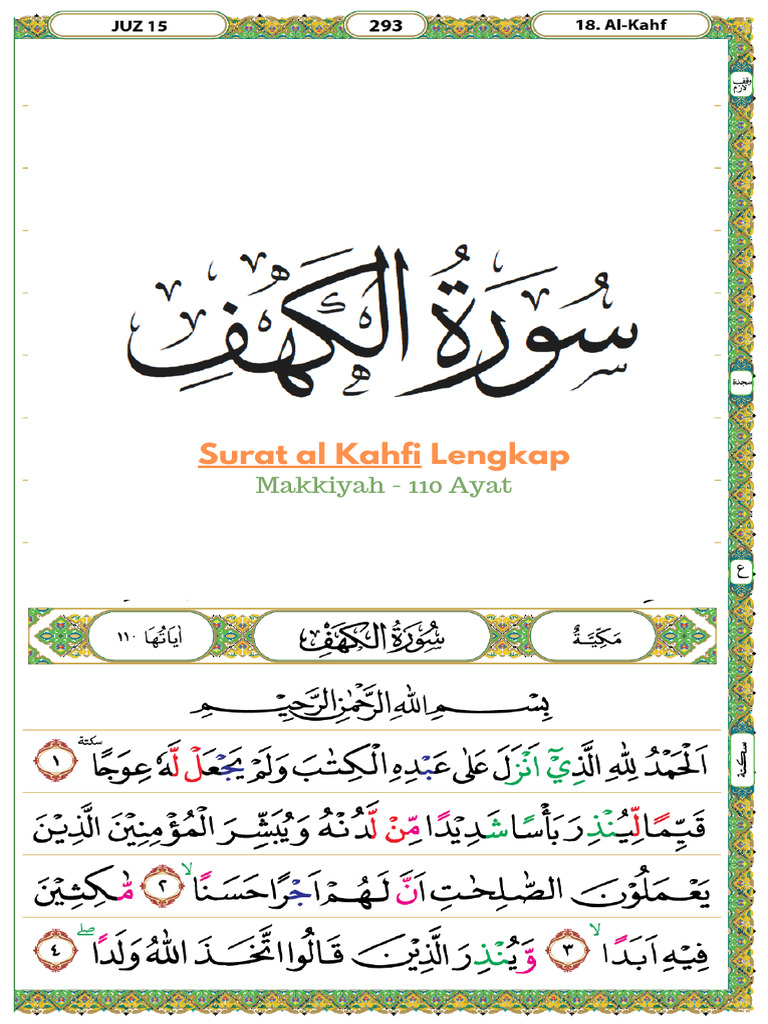 JUZ 15
293
18. Al-Kahf
وقف لازم
سُوْرَةُ الْكَهْفِ
سجدة
Surat al Kahfi Lengkap
Makkiyah - 110 Ayat
ع
مَكِّيَّةٌ
سُوْرَةُ الْكَهْفِ
اٰيَاتُهَا ١١٠
بِسْمِ اللهِ الرَّحْمٰنِ الرَّحِيْمِ
سكتة
اَلْحَمْدُ لِلّٰهِ الَّذِيْٓ اَنْزَلَ عَلٰى عَبْدِهِ الْكِتٰبَ وَلَمْ يَجْعَلْ لَّهٗ عِوَجًا ۜسكتة ١
قَيِّمًا لِّيُنْذِرَ بَأْسًا شَدِيْدًا مِّنْ لَّدُنْهُ وَيُبَشِّرَ الْمُؤْمِنِيْنَ الَّذِيْنَ
يَعْمَلُوْنَ الصّٰلِحٰتِ اَنَّ لَهُمْ اَجْرًا حَسَنًاۙ ٢ مّٰكِثِيْنَ
فِيْهِ اَبَدًاۙ ٣ وَّيُنْذِرَ الَّذِيْنَ قَالُوا اتَّخَذَ اللهُ وَلَدًاۖ ٤